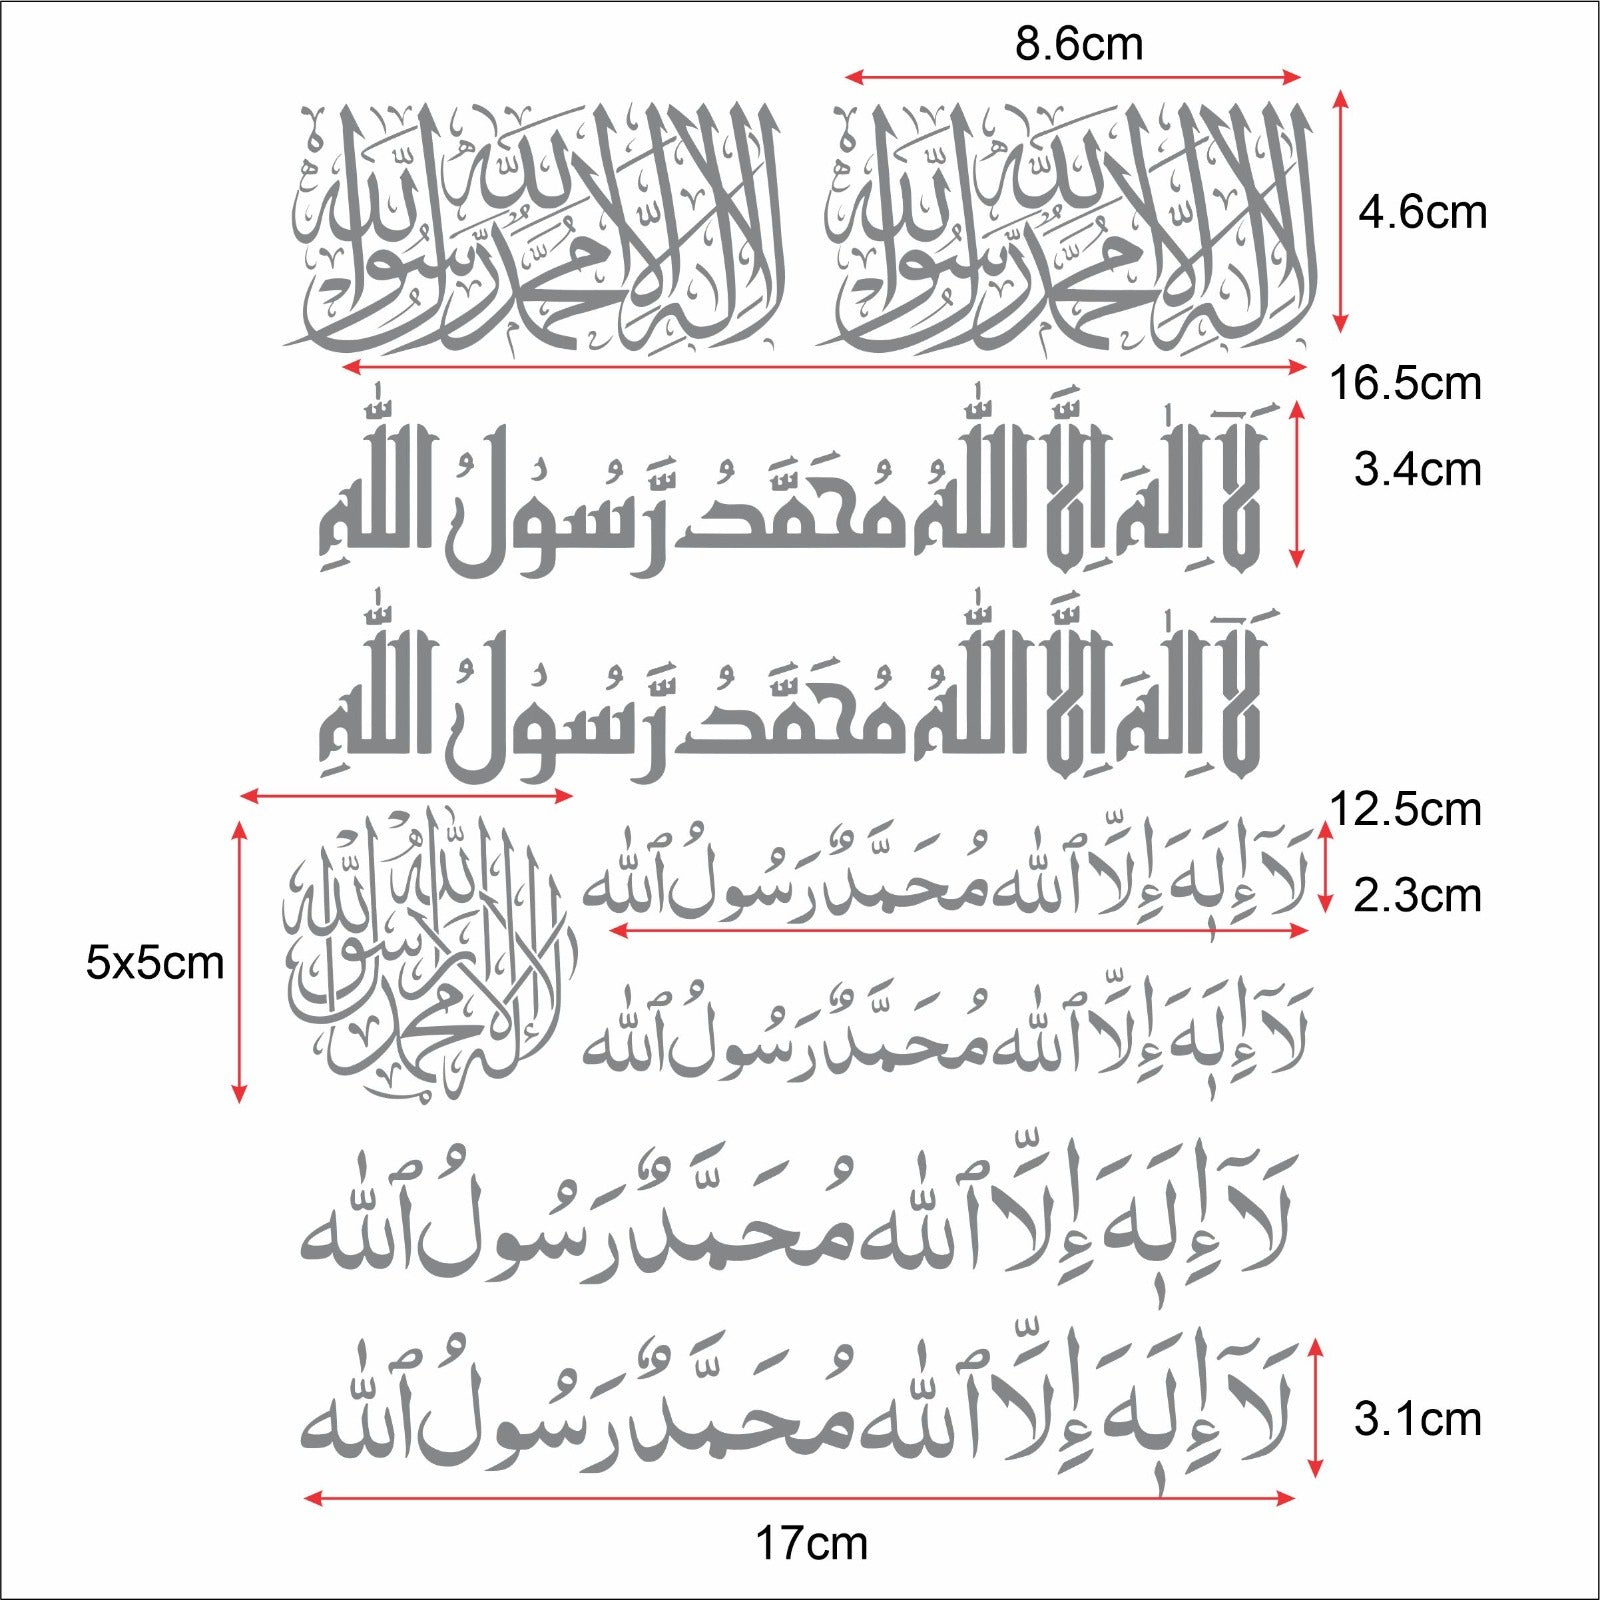 8.6cm
لا إله إلا الله محمد رسول الله
لا إله إلا الله محمد رسول الله
4.6cm
16.5cm
لَآ اِلٰهَ اِلَّا اللّٰهُ مُحَمَّدُ رَّسُوْلُ اللّٰهِ
3.4cm
لَآ اِلٰهَ اِلَّا اللّٰهُ مُحَمَّدُ رَّسُوْلُ اللّٰهِ
12.5cm
لَآ إِلَٰهَ إِلَّا ٱللّٰه مُحَمَّدٌ رَسُولُ ٱللّٰه
2.3cm
5x5cm
لا إله إلا الله محمد رسول الله
لَآ إِلَٰهَ إِلَّا ٱللّٰه مُحَمَّدٌ رَسُولُ ٱللّٰه
لَآ إِلَٰهَ إِلَّا ٱللّٰه مُحَمَّدٌ رَسُولُ ٱللّٰه
لَآ إِلَٰهَ إِلَّا ٱللّٰه مُحَمَّدٌ رَسُولُ ٱللّٰه
3.1cm
17cm